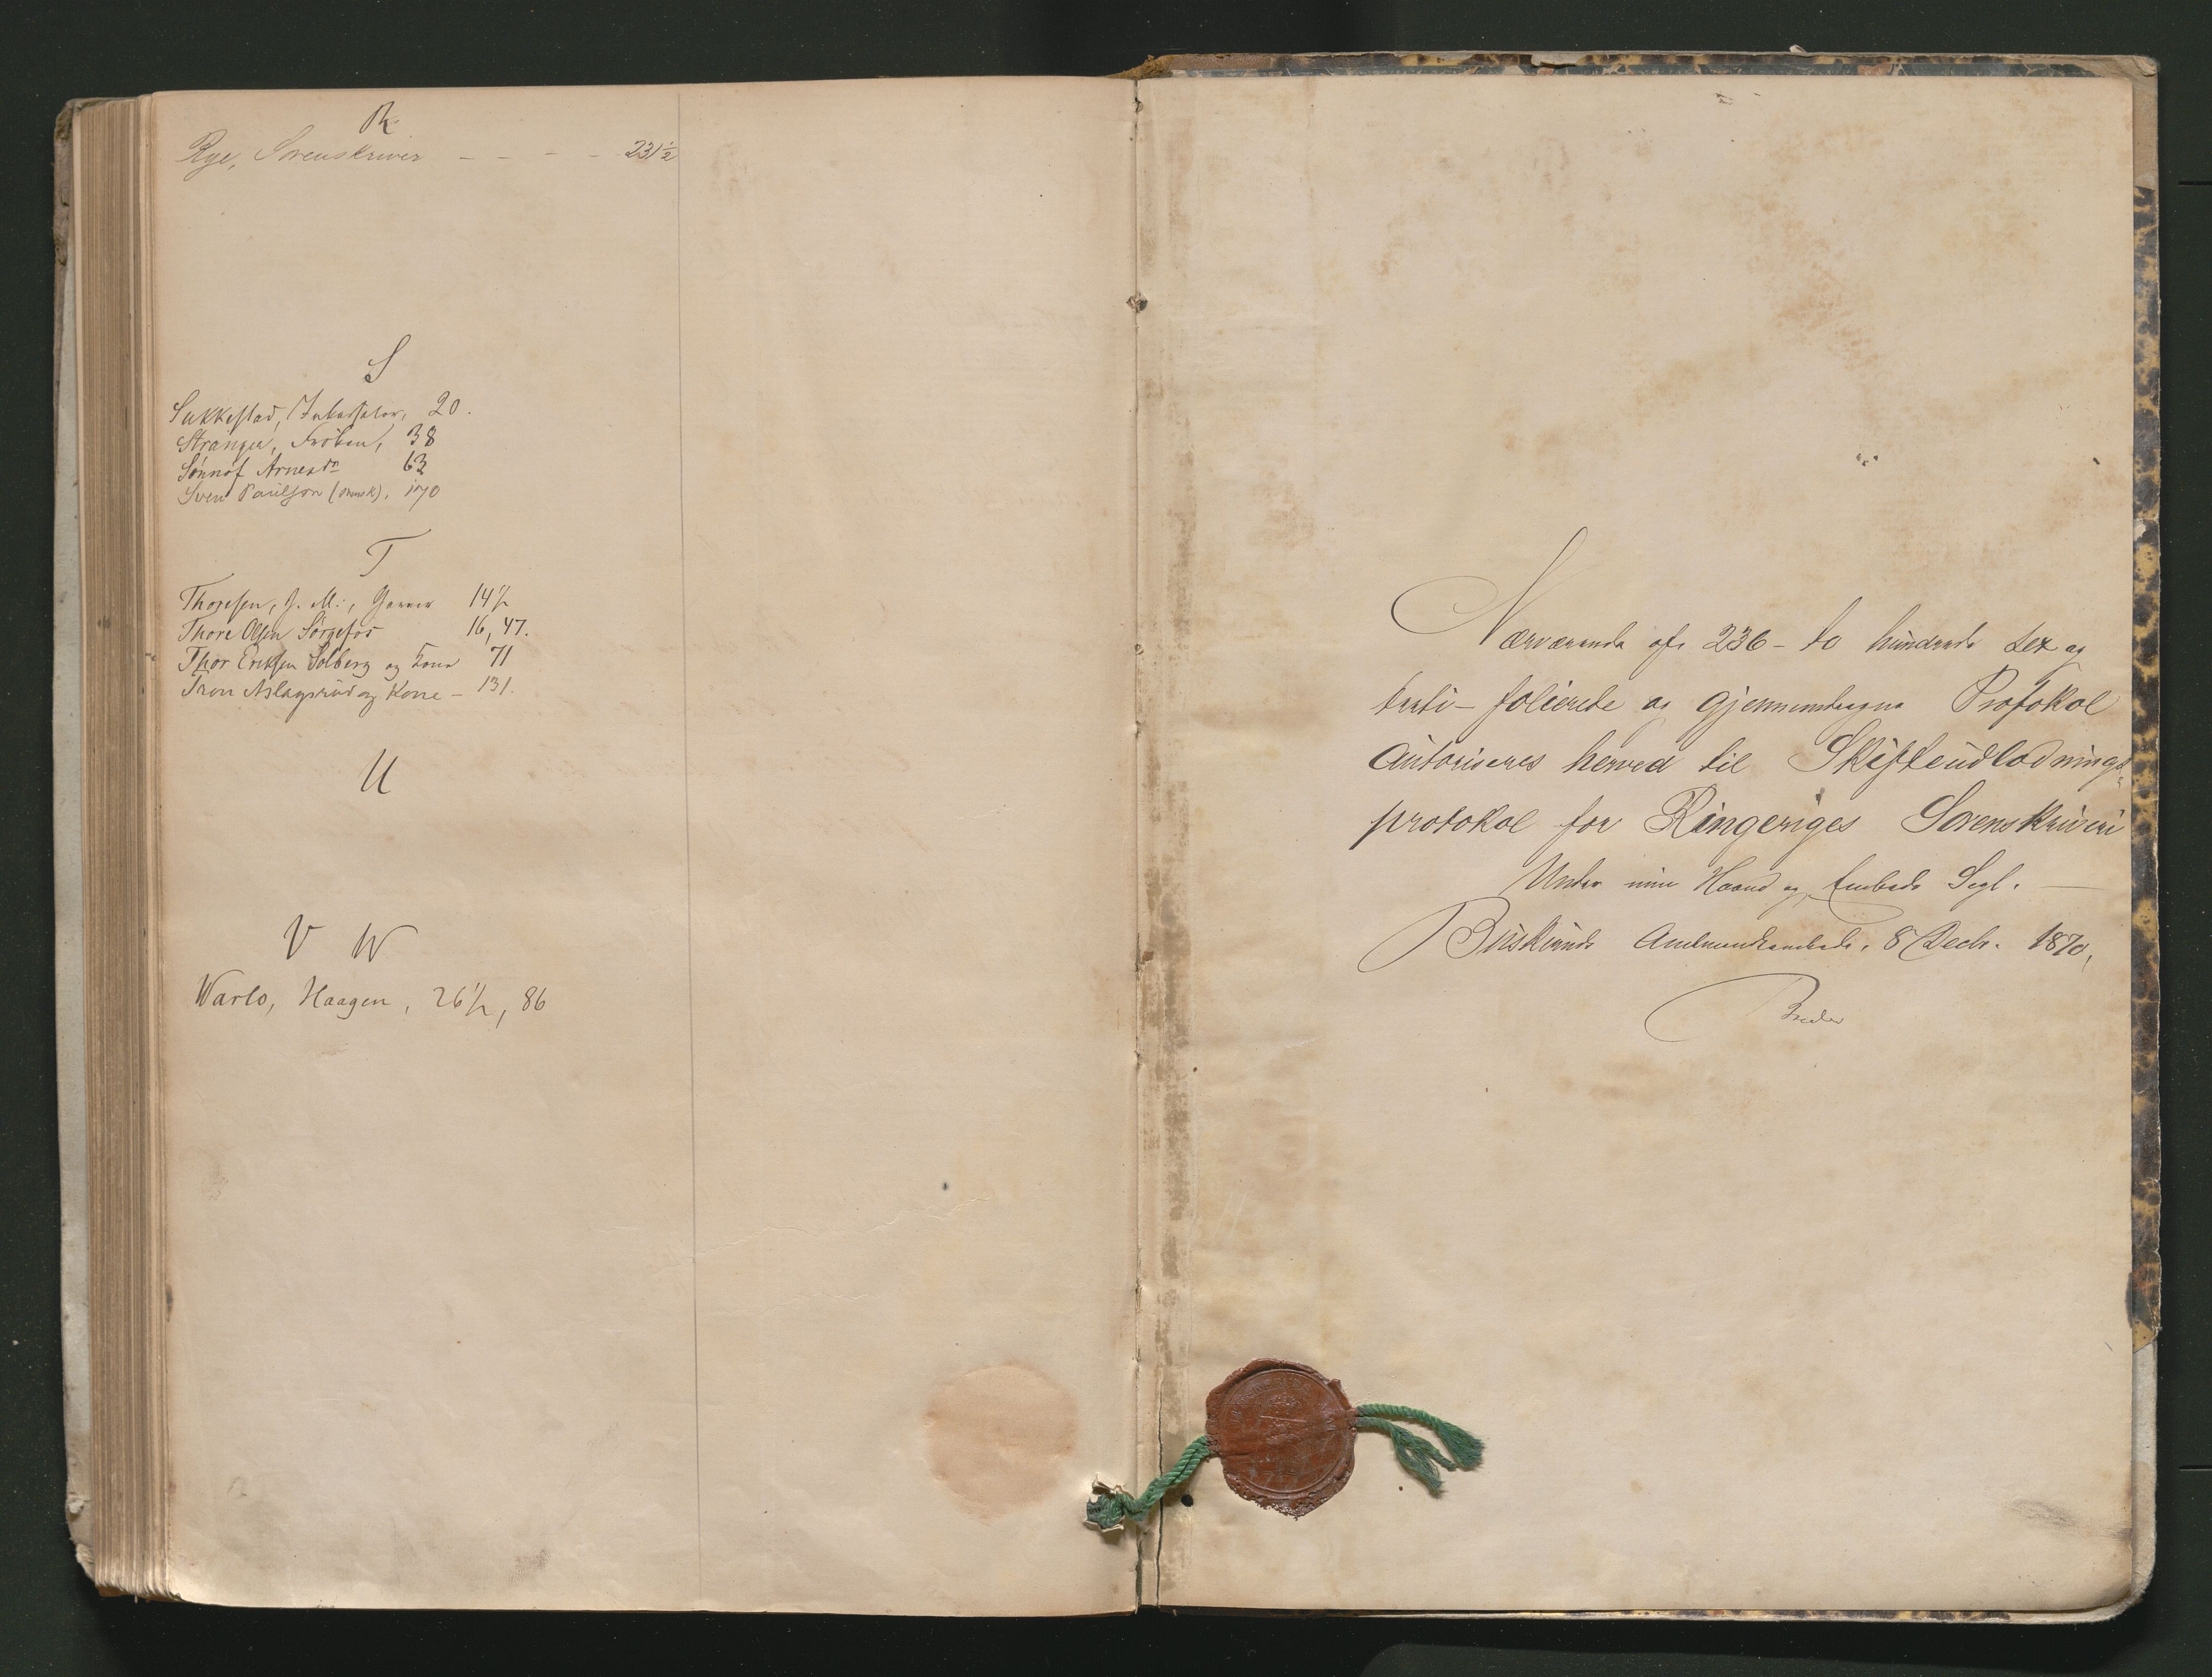 R
Rye, Sorenskriver - - - - 231½
S
Sukkestad, 20.
Stranger, Frøken, 38
Sønnøf Arnesdr 63
Sven Paulson (svensk), 170
T
Thoresen, J. M., 14½
Thore Olsen Sørgefos 16, 47.
Thor Eriksen Solberg og Kone 71
Tron Aslagsrud og Kone - 131.
U
V W
Warlo, Haagen, 26½, 86
Nærværende af 236 - to hundrede sex og
treti - folierede og gjennemdragne Protokol
autoriseres herved til Skifteudlodnings-
protokol for Ringeriges Sorenskriveri
Under min Haand og Embeds Segl.
Buskeruds Amtmandsembede, 8 Decbr. 1870,